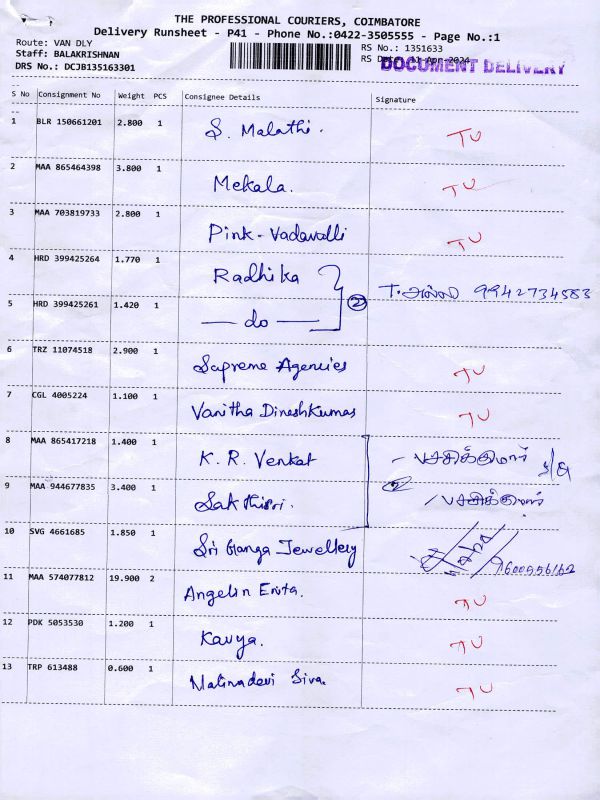 THE PROFESSIONAL COURIERS, COIMBATORE
Delivery Runsheet - P41 - Phone No.:0422-3505555 - Page No.:1
Route: VAN DLY
Staff: BALAKRISHNAN
DRS No.: DCJB135163301
RS No.: 1351633
RS Date: 11-Apr-2024
DOCUMENT DELIVERY
S No Consignment No Weight PCS Consignee Details Signature
1 BLR 150661201 2.800 1 S. Malathi. TU
2 MAA 865464398 3.800 1 Mekala. TU
3 MAA 703819733 2.800 1 Pink-Vadavalli TU
4 HRD 399425264 1.770 1 Radhika 9942734583
5 HRD 399425261 1.420 1 — do — 2
6 TRZ 11074518 2.900 1 Supreme Agencies TU
7 CGL 4005224 1.100 1 Vanitha Dineshkumar TU
8 MAA 865417218 1.400 1 K. R. Venkat
9 MAA 944677835 3.400 1 Sakthisri. 2
10 SVG 4661685 1.850 1 Sri Ganga Jewellery
11 MAA 574077812 19.900 2 Angelin TU
12 PDK 5053530 1.200 1 Kavya. TU
13 TRP 613488 0.600 1 Malinadevi Siva. TU